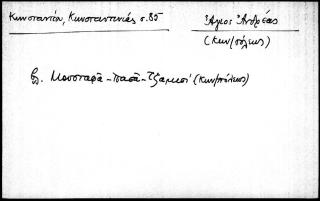 Κωνσταντίου, Κωνσταντινιάς σ. 85
Ἅγιος Ἀνδρέας
(Κων/πόλεως)
βλ. Μουσταφᾶ - πασᾶ - Τζαμισί (Κων/πόλεως)